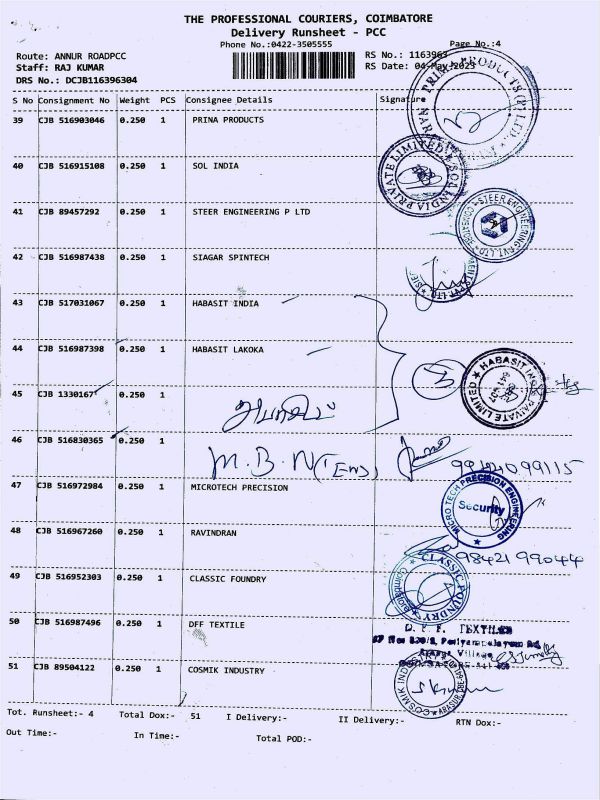 THE PROFESSIONAL COURIERS, COIMBATORE
Delivery Runsheet - PCC
Phone No.:0422-3505555
Page No.:4
Route: ANNUR ROADPCC
RS No.: 1163963
Staff: RAJ KUMAR
RS Date: 04-May-2023
DRS No.: DCJB116396304
S No Consignment No Weight PCS Consignee Details Signature
39 CJB 516903046 0.250 1 PRINA PRODUCTS
40 CJB 516915108 0.250 1 SOL INDIA
41 CJB 89457292 0.250 1 STEER ENGINEERING P LTD
42 CJB 516987438 0.250 1 SIAGAR SPINTECH
43 CJB 517031067 0.250 1 HABASIT INDIA
44 CJB 516987398 0.250 1 HABASIT LAKOKA
HABASIT PRIVATE LIMITED
45 CJB 1330167 0.250 1
46 CJB 516830365 0.250 1 M.B.N
99421099115
47 CJB 516972984 0.250 1 MICROTECH PRECISION
MICRO TECH PRECISION ENGINEERING
Security
48 CJB 516967260 0.250 1 RAVINDRAN
98421 99044
49 CJB 516952303 0.250 1 CLASSIC FOUNDRY
CLASSIC FOUNDRY
50 CJB 516987496 0.250 1 DFF TEXTILE
51 CJB 89504122 0.250 1 COSMIK INDUSTRY
Tot. Runsheet:- 4 Total Dox:- 51 I Delivery:- II Delivery:- RTN Dox:-
Out Time:- In Time:- Total POD:-